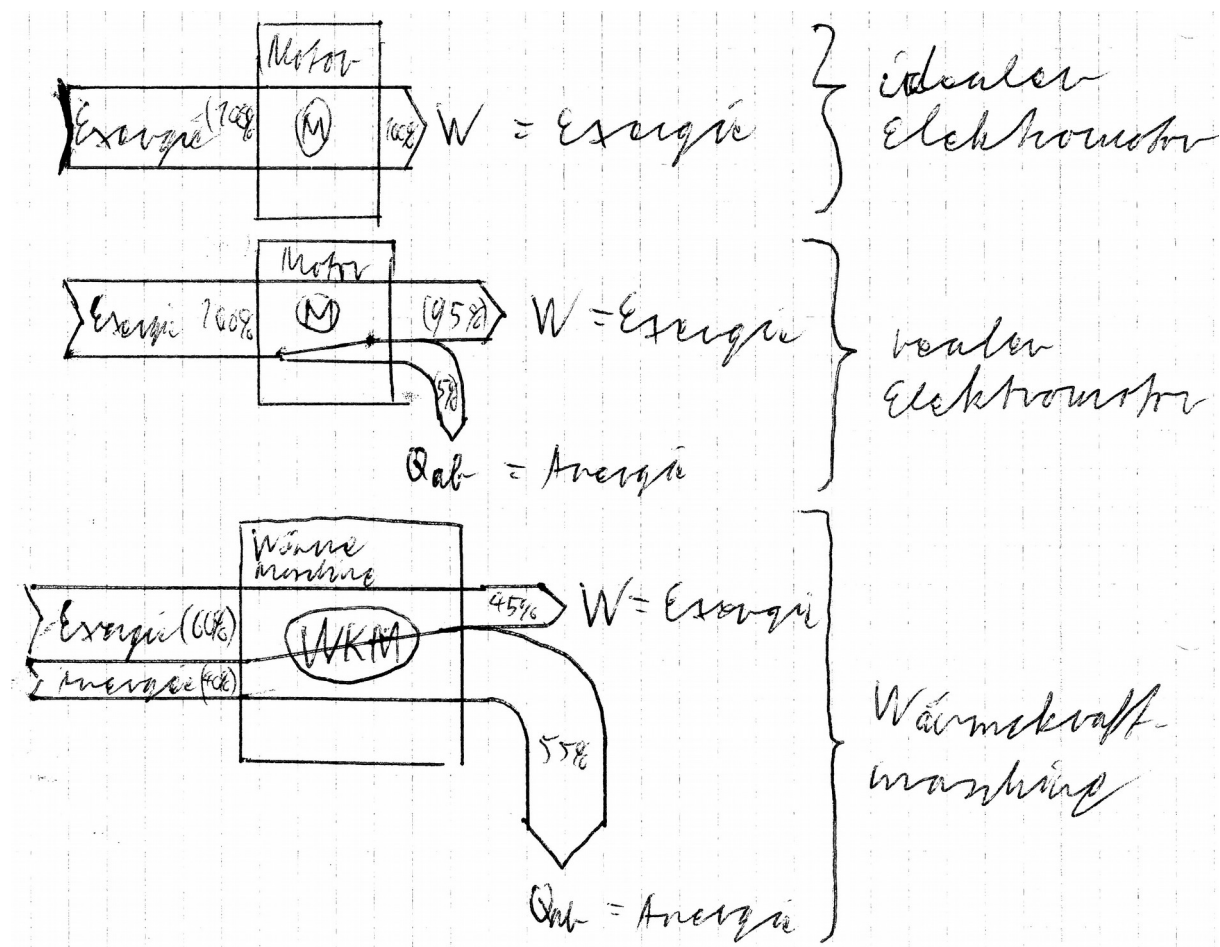 Motor
Exergie (100%
M
100%
W = Exergie
idealer
Elektromotor
Motor
Exergie 100%
M
(95%)
W = Exergie
5%
Qab = Anergie
realer
Elektromotor
Wärme
maschine
Exergie (60%)
WKM
45%
W = Exergie
Anergie (40%)
55%
Qab = Anergie
Wärmekraft-
maschine